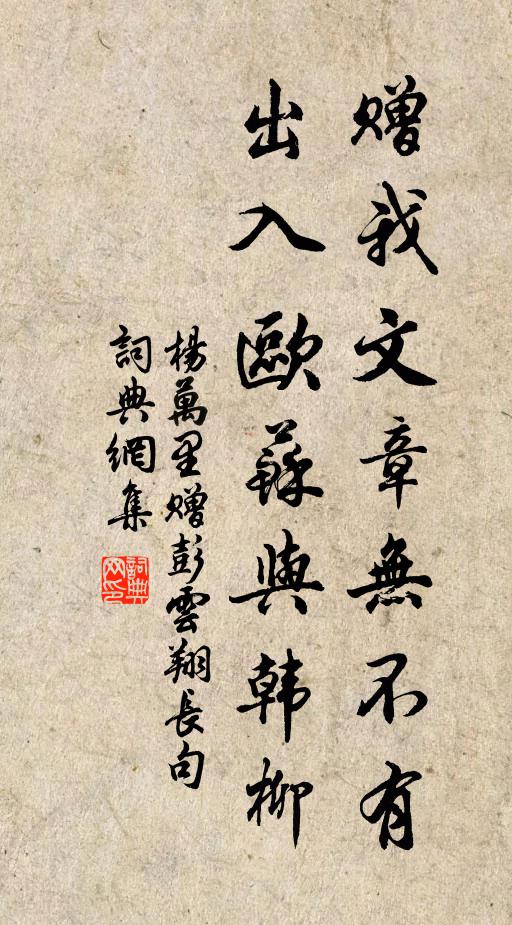 赠我文章無不有
出入歐蘇與韩柳
楊萬里赠彭雲翔長句
詞典網集
詞典网印